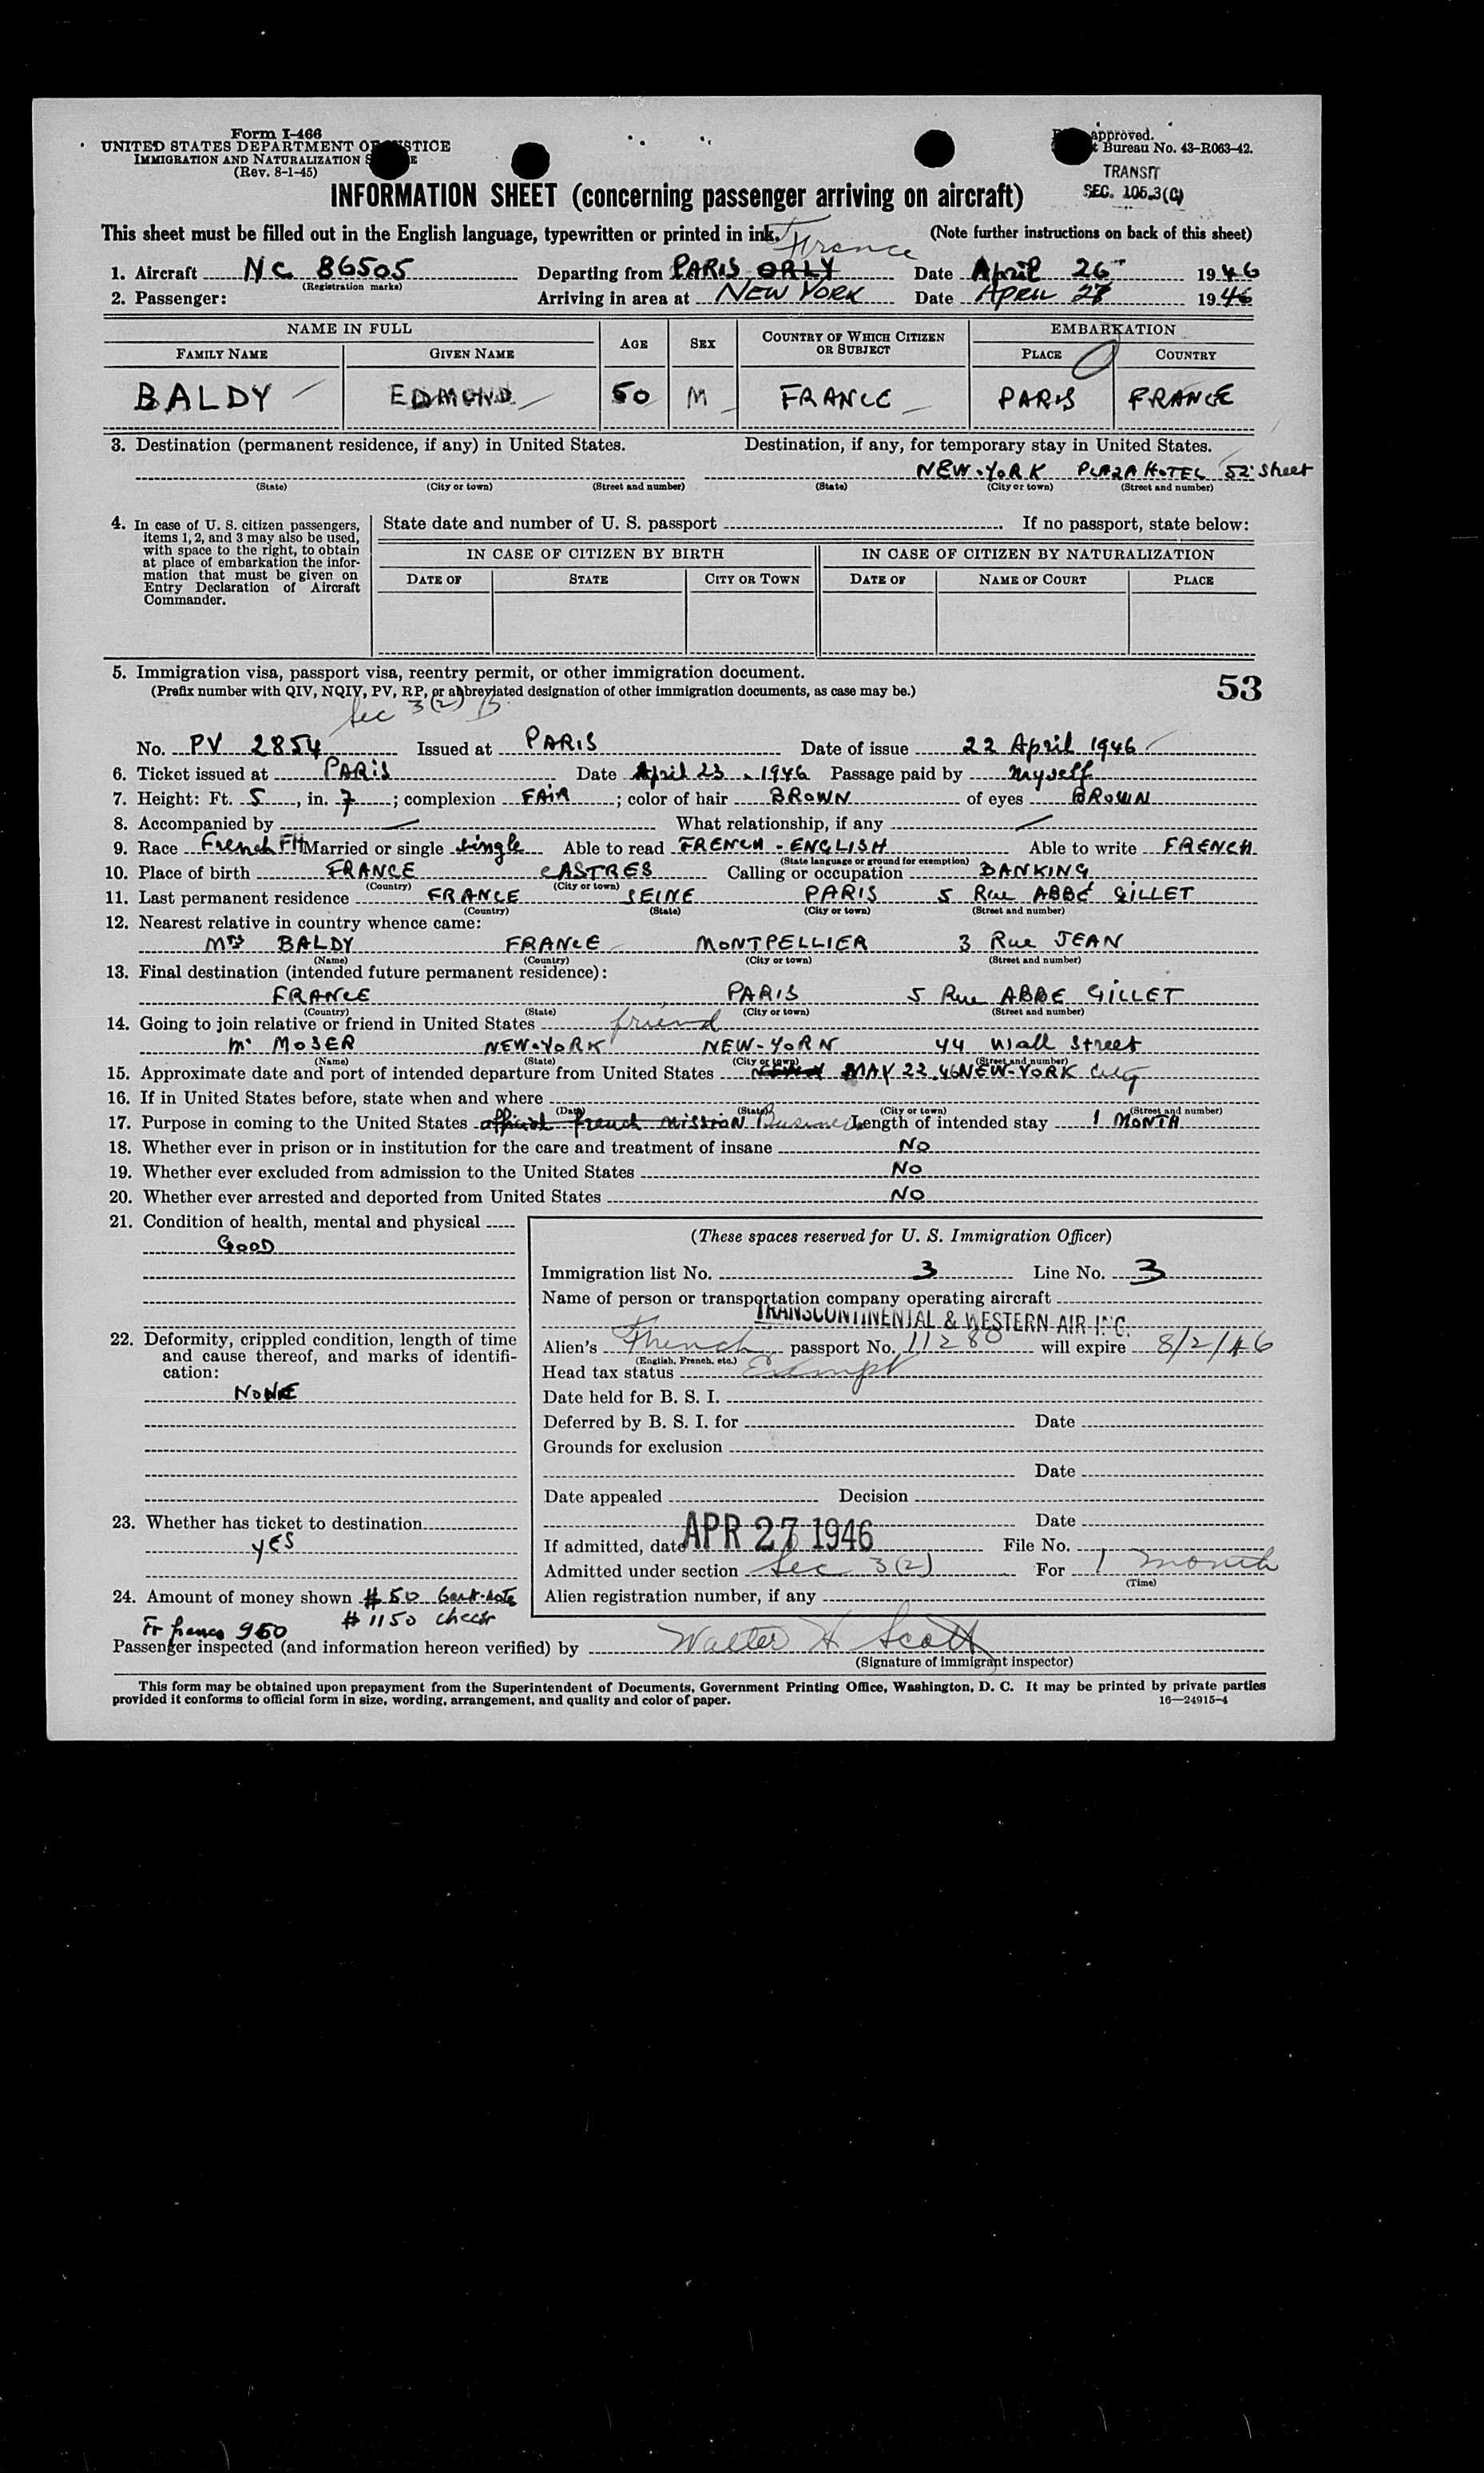 Form I-466
UNITED STATES DEPARTMENT OF JUSTICE
IMMIGRATION AND NATURALIZATION
(Rev. 8-1-45)
approved.
Bureau No. 43-R063-42.
TRANSIT
SEC. 105.3(C)
INFORMATION SHEET (concerning passenger arriving on aircraft)
This sheet must be filled out in the English language, typewritten or printed in ink.
(Note further instructions on back of this sheet)
France
1. Aircraft NC 86505 Departing from PARIS ORLY Date April 26 1946
(Registration marks)
2. Passenger: Arriving in area at NEW YORK Date APRIL 27 1946
NAME IN FULL AGE SEX COUNTRY OF WHICH CITIZEN OR SUBJECT EMBARKATION
FAMILY NAME GIVEN NAME PLACE COUNTRY
BALDY EDMOND 50 M FRANCE PARIS FRANCE
3. Destination (permanent residence, if any) in United States. Destination, if any, for temporary stay in United States.
NEW-YORK PLAZA HOTEL 52 Sheet
(State) (City or town) (Street and number) (State) (City or town) (Street and number)
4. In case of U. S. citizen passengers, items 1, 2, and 3 may also be used, with space to the right, to obtain at place of embarkation the information that must be given on Entry Declaration of Aircraft Commander.
State date and number of U. S. passport If no passport, state below:
IN CASE OF CITIZEN BY BIRTH IN CASE OF CITIZEN BY NATURALIZATION
DATE OF STATE CITY OR TOWN DATE OF NAME OF COURT PLACE
5. Immigration visa, passport visa, reentry permit, or other immigration document.
(Prefix number with QIV, NQIV, PV, RP, or abbreviated designation of other immigration documents, as case may be.)
53
Sec 3(2) B
No. PV 2854 Issued at PARIS Date of issue 22 April 1946
6. Ticket issued at PARIS Date April 23, 1946 Passage paid by myself
7. Height: Ft. 5, in. 7; complexion FAIR; color of hair BROWN of eyes BROWN
8. Accompanied by What relationship, if any
9. Race French FH Married or single single Able to read FRENCH - ENGLISH Able to write FRENCH
(State language or ground for exemption)
10. Place of birth FRANCE CASTRES Calling or occupation BANKING
(Country) (City or town)
11. Last permanent residence FRANCE SEINE PARIS 5 Rue ABBÉ GILLET
(Country) (State) (City or town) (Street and number)
12. Nearest relative in country whence came:
Mrs BALDY FRANCE MONTPELLIER 3 Rue JEAN
(Name) (Country) (City or town) (Street and number)
13. Final destination (intended future permanent residence):
FRANCE PARIS 5 Rue ABBE GILLET
(Country) (State) (City or town) (Street and number)
14. Going to join relative or friend in United States friend
Mr MOSER NEW-YORK NEW-YORK 44 Wall Street
(Name) (State) (City or town) (Street and number)
15. Approximate date and port of intended departure from United States MAY 22.46 NEW-YORK City
16. If in United States before, state when and where
(Date) (State) (City or town) (Street and number)
17. Purpose in coming to the United States official french mission Business Length of intended stay 1 MONTH
18. Whether ever in prison or in institution for the care and treatment of insane NO
19. Whether ever excluded from admission to the United States NO
20. Whether ever arrested and deported from United States NO
21. Condition of health, mental and physical
GOOD
22. Deformity, crippled condition, length of time and cause thereof, and marks of identification:
NONE
23. Whether has ticket to destination
YES
24. Amount of money shown $50 bank-note
$1150 check
Fr francs 950
(These spaces reserved for U. S. Immigration Officer)
Immigration list No. 3 Line No. 3
Name of person or transportation company operating aircraft
TRANSCONTINENTAL & WESTERN AIR INC.
Alien's French passport No. 11280 will expire 8/2/46
(English, French, etc.)
Head tax status Exempt
Date held for B. S. I.
Deferred by B. S. I. for Date
Grounds for exclusion
Date
Date appealed Decision
Date
If admitted, date APR 27 1946 File No.
Admitted under section Sec 3(2) For 1 month
(Time)
Alien registration number, if any
Passenger inspected (and information hereon verified) by Walter H Scott
(Signature of immigrant inspector)
This form may be obtained upon prepayment from the Superintendent of Documents, Government Printing Office, Washington, D. C. It may be printed by private parties
provided it conforms to official form in size, wording, arrangement, and quality and color of paper.
16—24915-4